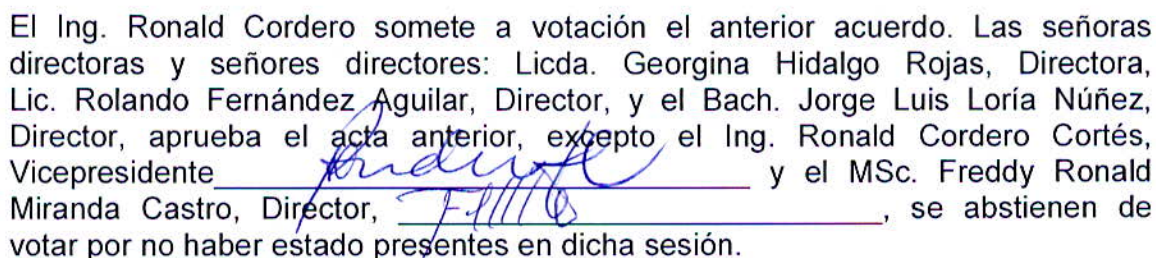 El Ing. Ronald Cordero somete a votación el anterior acuerdo. Las señoras
directoras y señores directores: Licda. Georgina Hidalgo Rojas, Directora,
Lic. Rolando Fernández Aguilar, Director, y el Bach. Jorge Luis Loría Núñez,
Director, aprueba el acta anterior, excepto el Ing. Ronald Cordero Cortés,
Vicepresidente y el MSc. Freddy Ronald
Miranda Castro, Director, , se abstienen de
votar por no haber estado presentes en dicha sesión.